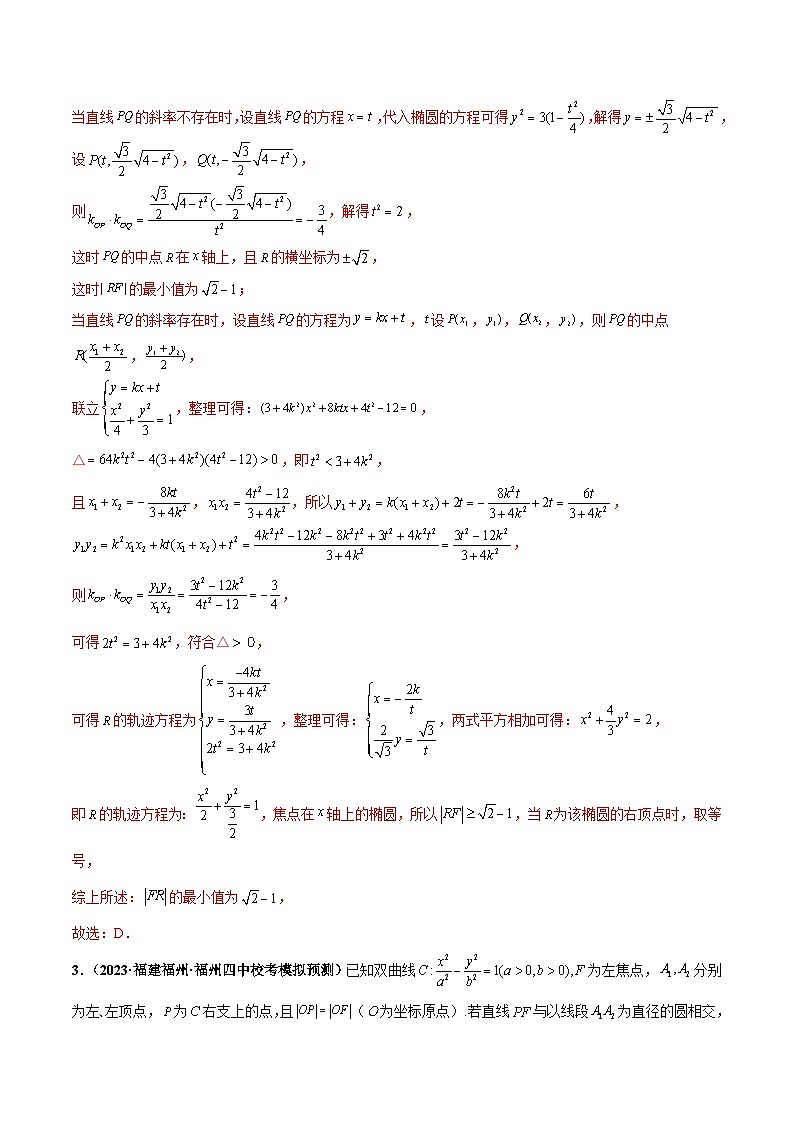 当直线PQ的斜率不存在时,设直线PQ的方程x = t,代入椭圆的方程可得y² = 3(1 − t²/4),解得y = ± √3/2 √(4 − t²),
设P(t, √3/2 √(4 − t²)),Q(t, − √3/2 √(4 − t²)),
则k_OP · k_OQ = (√3/2 √(4 − t²) (− √3/2 √(4 − t²)))/t² = − 3/4,解得t² = 2,
这时PQ的中点R在x轴上,且R的横坐标为± √2,
这时| RF |的最小值为√2 − 1;
当直线PQ的斜率存在时,设直线PQ的方程为y = kx + t,t设P(x₁,y₁),Q(x₂,y₂),则PQ的中点
R((x₁ + x₂)/2,(y₁ + y₂)/2),
联立{y = kx + t, x²/4 + y²/3 = 1,整理可得:(3 + 4k²)x² + 8ktx + 4t² − 12 = 0,
△= 64k²t² − 4(3 + 4k²)(4t² − 12) > 0,即t² < 3 + 4k²,
且x₁ + x₂ = − 8kt/(3 + 4k²),x₁x₂ = (4t² − 12)/(3 + 4k²),所以y₁ + y₂ = k(x₁ + x₂) + 2t = − 8k²t/(3 + 4k²) + 2t = 6t/(3 + 4k²),
y₁y₂ = k²x₁x₂ + kt(x₁ + x₂) + t² = (4k²t² − 12k² − 8k²t² + 3t² + 4k²t²)/(3 + 4k²) = (3t² − 12k²)/(3 + 4k²),
则k_OP · k_OQ = y₁y₂/x₁x₂ = (3t² − 12k²)/(4t² − 12) = − 3/4,
可得2t² = 3 + 4k²,符合△> 0,
可得R的轨迹方程为{x = −4kt/(3 + 4k²), y = 3t/(3 + 4k²), 2t² = 3 + 4k²,整理可得:{x = − 2k/t, 2/√3 y = √3/t,两式平方相加可得:x² + 4/3 y² = 2,
即R的轨迹方程为:x²/2 + y²/(3/2) = 1,焦点在x轴上的椭圆,所以|RF| ≥ √2 − 1,当R为该椭圆的右顶点时,取等
号,
综上所述:|FR|的最小值为√2 − 1,
故选:D.
3.(2023·福建福州·福州四中校考模拟预测)已知双曲线C : x²/a² − y²/b² = 1(a > 0, b > 0), F为左焦点,A₁, A₂分别
为左、左顶点,P为C右支上的点,且|OP| = |OF|(O为坐标原点).若直线PF与以线段A₁A₂为直径的圆相交,